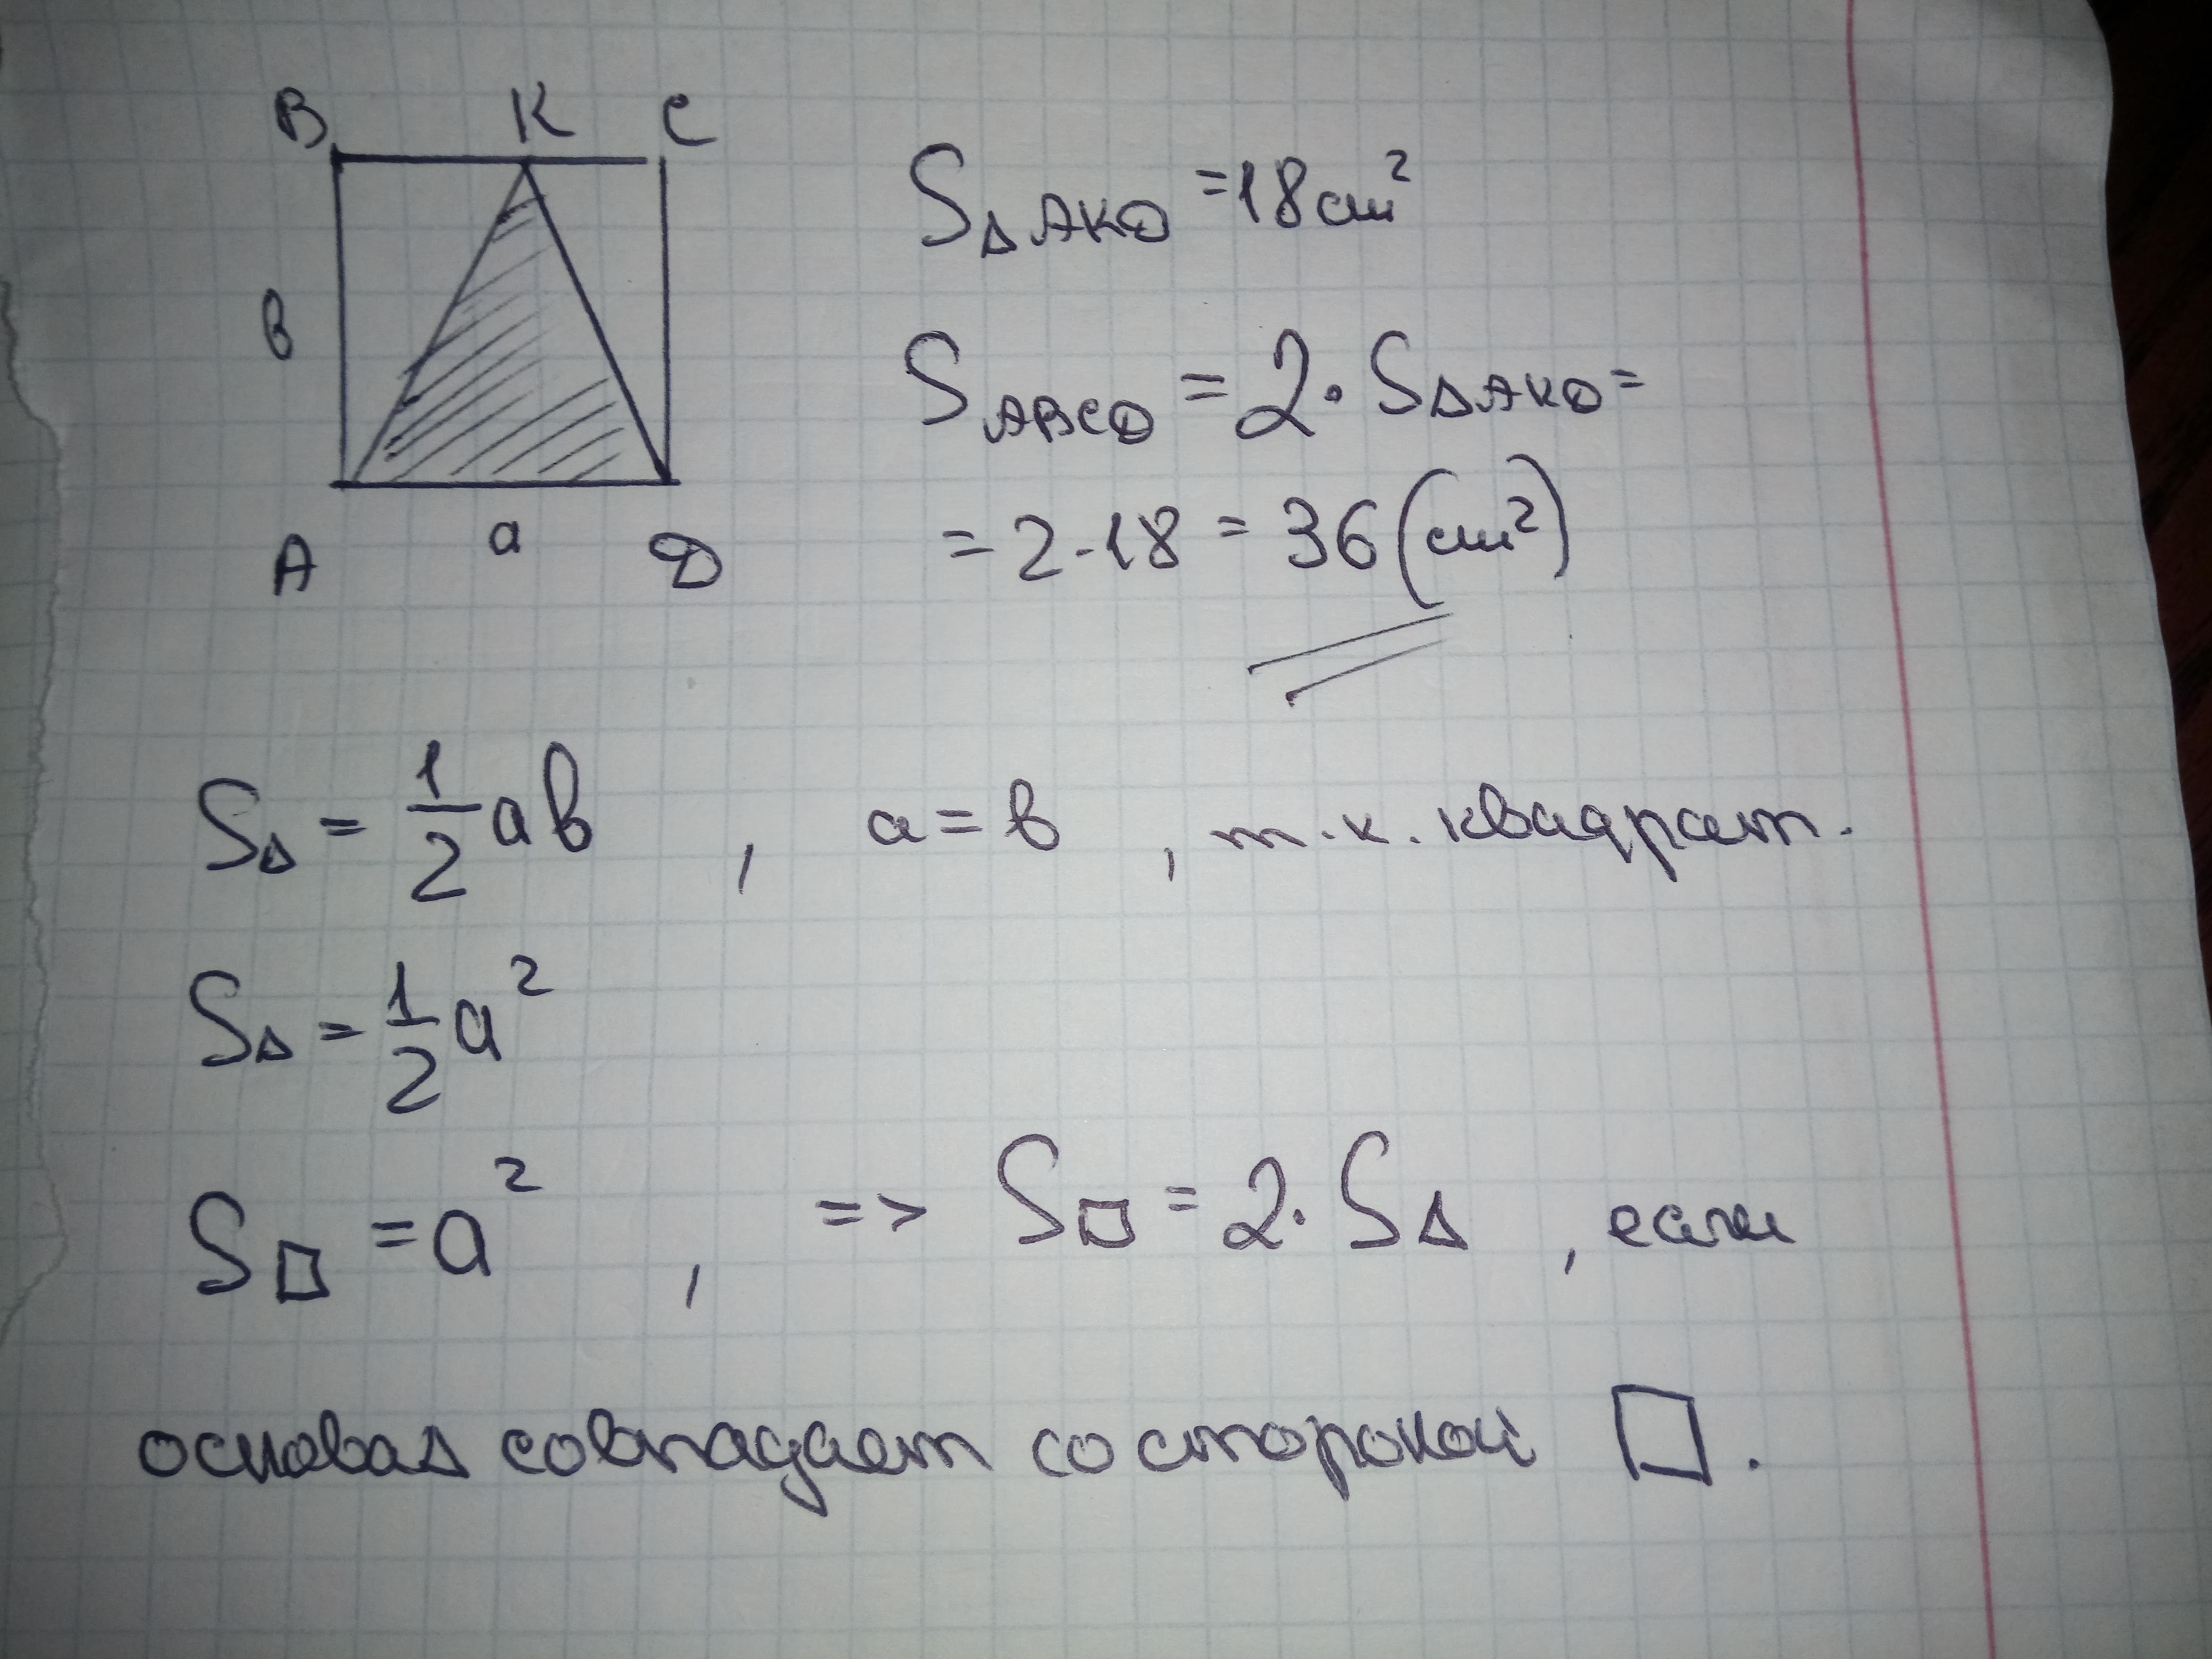 B K C
в
A a D
S△AKD = 18 см²
S ABCD = 2 · S△AKD =
= 2 · 18 = 36 (см²)
S△ = 1/2 ав , а = в , т.к. квадрат.
S△ = 1/2 а²
S□ = а² , => S□ = 2 · S△ , если
основа △ совпадает со стороной □ .